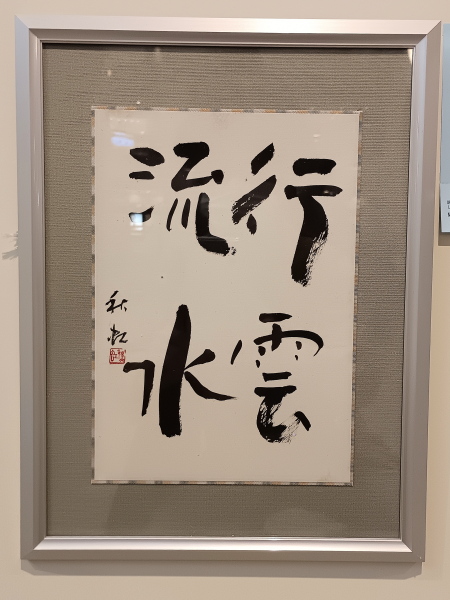 行雲
流水
秋虹